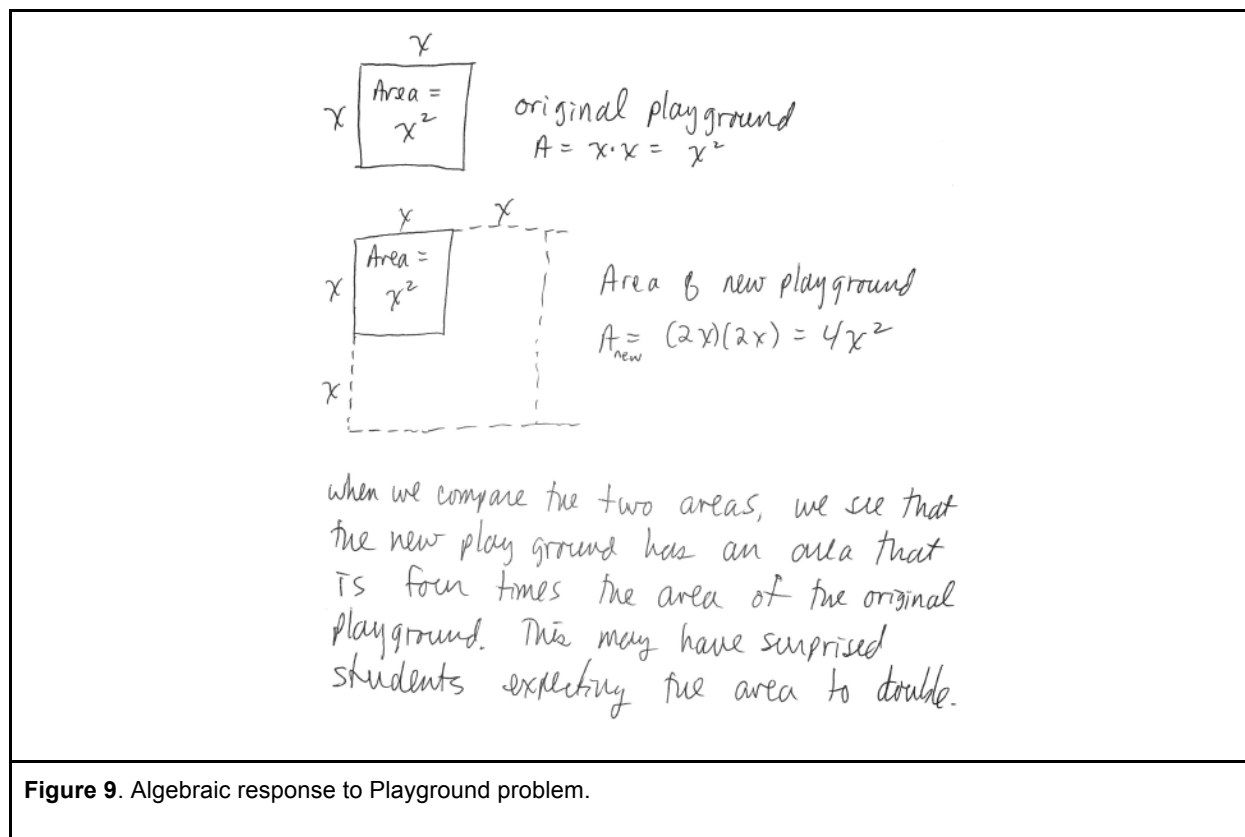 x
x
Area =
x²
original playground
A = x·x = x²
x
x
x
Area =
x²
x
Area of new playground
A_new = (2x)(2x) = 4x²
when we compare the two areas, we see that
the new play ground has an area that
is four times the area of the original
playground. This may have surprised
students expecting the area to double.
Figure 9. Algebraic response to Playground problem.